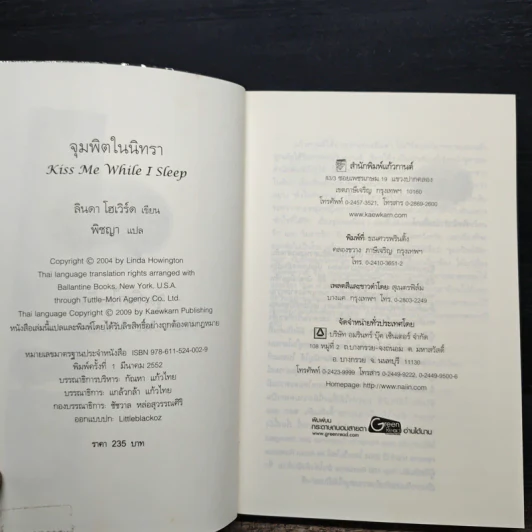 จุมพิตในนิทรา
Kiss Me While I Sleep
ลินดา โฮเวิร์ด เขียน
พิชญา แปล
Copyright © 2004 by Linda Howington
Thai language translation rights arranged with
Ballantine Books, New York, U.S.A.
through Tuttle-Mori Agency Co., Ltd.
Thai language Copyright © 2009 by Kaewkarn Publishing
หนังสือเล่มนี้แปลและพิมพ์โดยได้รับลิขสิทธิ์อย่างถูกต้องตามกฎหมาย
หมายเลขมาตรฐานประจำหนังสือ ISBN 978-611-524-002-9
พิมพ์ครั้งที่ 1 มีนาคม 2552
บรรณาธิการบริหาร กัณหา แก้วไทย
บรรณาธิการ แกล้วกล้า แก้วไทย
กองบรรณาธิการ ชัชวาล หล่อสุวรรณศิริ
ออกแบบปก Littleblackoz
ราคา 235 บาท
สำนักพิมพ์แก้วกานต์
83/3 ซอยเพชรเกษม 19 แขวงปากคลอง
เขตภาษีเจริญ กรุงเทพฯ 10160
โทรศัพท์ 0-2457-3521, โทรสาร 0-2869-3800
www.kaewkarn.com
พิมพ์ที่
คลองขวาง ภาษีเจริญ กรุงเทพฯ
โทร. 0-2410-3851-2
เพลตสีและขาวดำโดย สุเนตรฟิล์ม
บางแค กรุงเทพฯ โทร. 0-2803-2249
จัดจำหน่ายทั่วประเทศโดย
บริษัท อมรินทร์ บุ๊ค เซ็นเตอร์ จำกัด
108 หมู่ที่ 2 ถ.บางกรวย-จงถนอม ต. มหาสวัสดิ์
อ. บางกรวย จ. นนทบุรี 11130
โทรศัพท์ 0-2423-9999 โทรสาร 0-2449-9222, 0-2449-9500-6
Homepage: http://www.naiin.com
พิมพ์บน
กระดาษถนอมสายตา
www.greenread.com
Green
Read
อ่านได้นาน